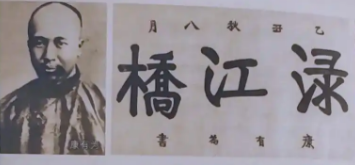 乙丑秋八月
渌江橋
康有為書